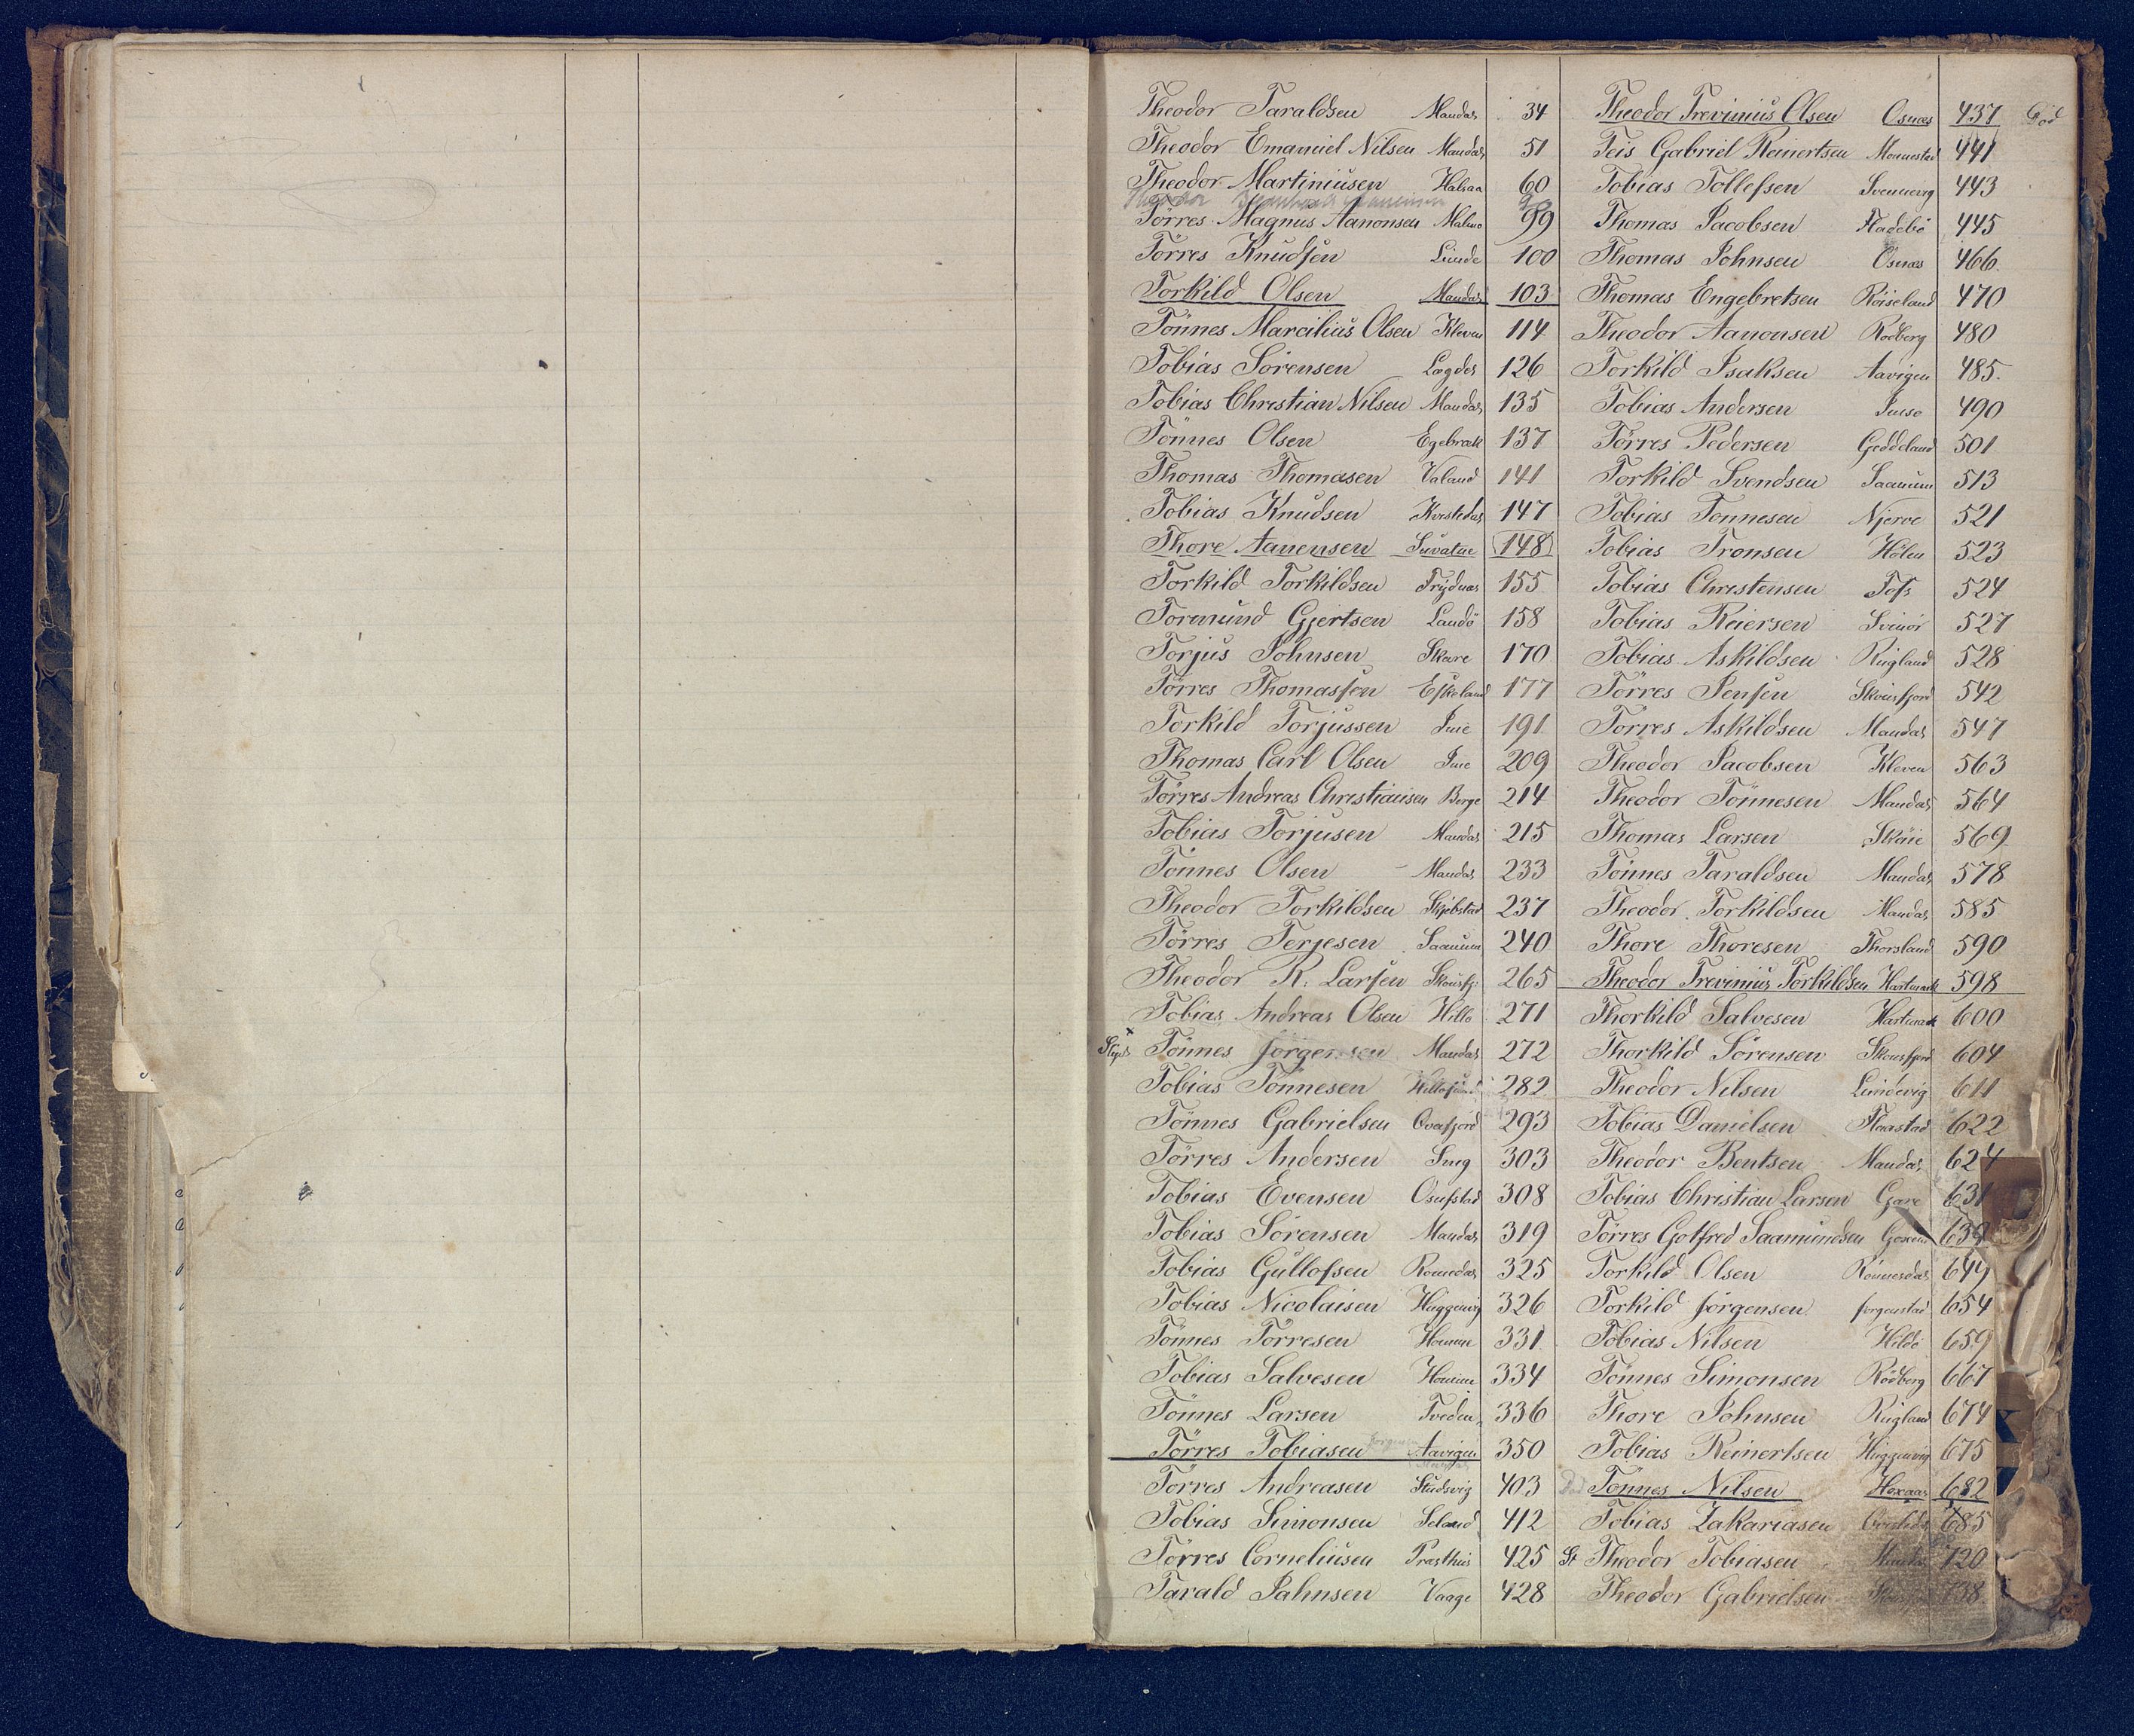 Theodor Taraldsen Mandal 34
Theodor Emanuel Nilsen Mandal 51
Theodor Martiniusen Halsaa 60
Theodor
Törres Magnus Aanonsen Malmö 99
Törres Knudsen Lunde 100
Torkild Olsen Mandal 103
Tönnes Marcilius Olsen Kleven 114
Tobias Sörensen Lögdal 126
Tobias Christian Nilsen Mandal 135
Tönnes Olsen Egebrak 137
Thomas Thomasen Valand 141
Tobias Knudsen Kvistedal 147
Thore Aanensen Suvatne 148
Torkild Torkildsen Frydnæs 155
Tormund Gjertsen Landö 158
Torjus Johnsen Skare 170
Törres Thomassen Eskeland 177
Torkild Torjussen Ime 191
Thomas Carl Olsen Ime 209
Törres Andreas Christiansen Berge 214
Tobias Torjusen Mandal 215
Tönnes Olsen Mandal 233
Theodor Torkildsen Skjebstad 237
Törres Terjesen Saanum 240
Theodor R. Larsen Skousfj: 265
Tobias Andreas Olsen Hille 271
Tönnes Jörgensen Mandal 272
Tobias Tönnesen Hillesund 282
Tönnes Gabrielsen Ovesfjord 293
Törres Andersen 303
Tobias Evensen Osestad 308
Tobias Sörensen Mandal 319
Tobias Gullofsen Romedal 325
Tobias Nicolaisen Huggenvig 326
Tönnes Torresen Homme 331
Tobias Salvesen Homme 334
Tönnes Larsen Tveden 336
Törres Tobiasen Aavigen 350
Törres Andreasen Studsvig 403
Tobias Simonsen Seland 412
Törres Corneliusen Præsthus 425
Tarald Jahnsen Vaage 428
Theodor Trevinius Olsen Osnæs 437 Död
Teis Gabriel Reinertsen Monnestad 441
Tobias Tollefsen Svennevig 443
Thomas Jacobsen Fladebö 445
Thomas Johnsen Osnæs 466
Thomas Engebretsen Röiseland 470
Theodor Aanonsen Rödberg 480
Torkild Isaksen Aavigen 485
Tobias Andersen Imse 490
Törres Pedersen Geddeland 501
Torkild Svendsen Saanum 513
Tobias Tonnesen Njerve 521
Tobias Tronsen Holm 523
Tobias Christensen Tofs 524
Tobias Reiersen Svinör 527
Tobias Askildsen Rugland 528
Törres Jensen Skousfjord 542
Törres Askildsen Mandal 547
Theodor Jacobsen Kleven 563
Theodor Tönnesen Mandal 564
Thomas Larsen Sköie 569
Tönnes Taraldsen Mandal 578
Theodor Torkildsen Mandal 585
Thore Thoresen Thorsland 590
Theodor Trevinius Torkildsen Hartmark 598
Thorkild Salvesen Hartmark 600
Thorkild Sörensen Skousfjord 604
Theodor Nilsen Lundevig 611
Tobias Danielsen Flaastad 622
Theodor Bentsen Mandal 624
Tobias Christian Larsen Gare 631
Törres Gotfred Saamundsen 639
Torkild Olsen Rönnesdal 649
Torkild Jörgensen Jörgenstad 654
Tobias Nilsen Hille 659
Tönnes Simonsen Rödberg 667
Thore Johnsen Rugland 674
Tobias Reinertsen Huggenvig 675
Tönnes Nilsen Hoxaas 682
Tobias Zakariasen 685
St Theodor Tobiasen 720
Theodor Gabrielsen 738